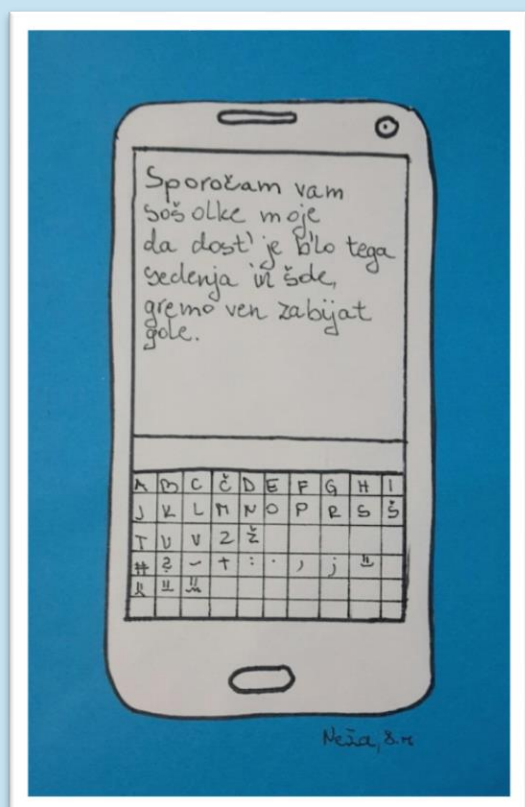 Sporočam vam
sošolke moje
da dost' je b'lo tega
sedenja in šole,
gremo ven zabijat
gole.
A B C Č D E F G H I
J K L M N O P R S Š
T U V Z Ž
# ? - + : . , ;
Neža, 8.r